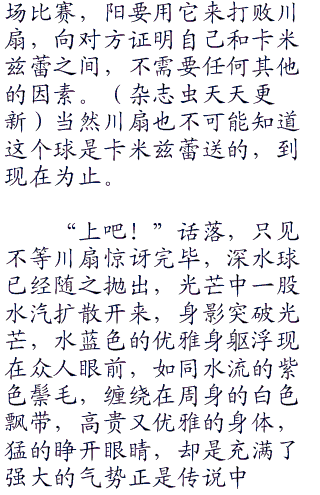 场比赛，阳要用它来打败川
扇，向对方证明自己和卡米
兹蕾之间，不需要任何其他
的因素。（杂志虫天天更
新）当然川扇也不可能知道
这个球是卡米兹蕾送的，到
现在为止。
“上吧！”话落，只见
不等川扇惊讶完毕，深水球
已经随之抛出，光芒中一股
水汽扩散开来，身影突破光
芒，水蓝色的优雅身躯浮现
在众人眼前，如同水流的紫
色鬃毛，缠绕在周身的白色
飘带，高贵又优雅的身体，
猛的睁开眼睛，却是充满了
强大的气势正是传说中